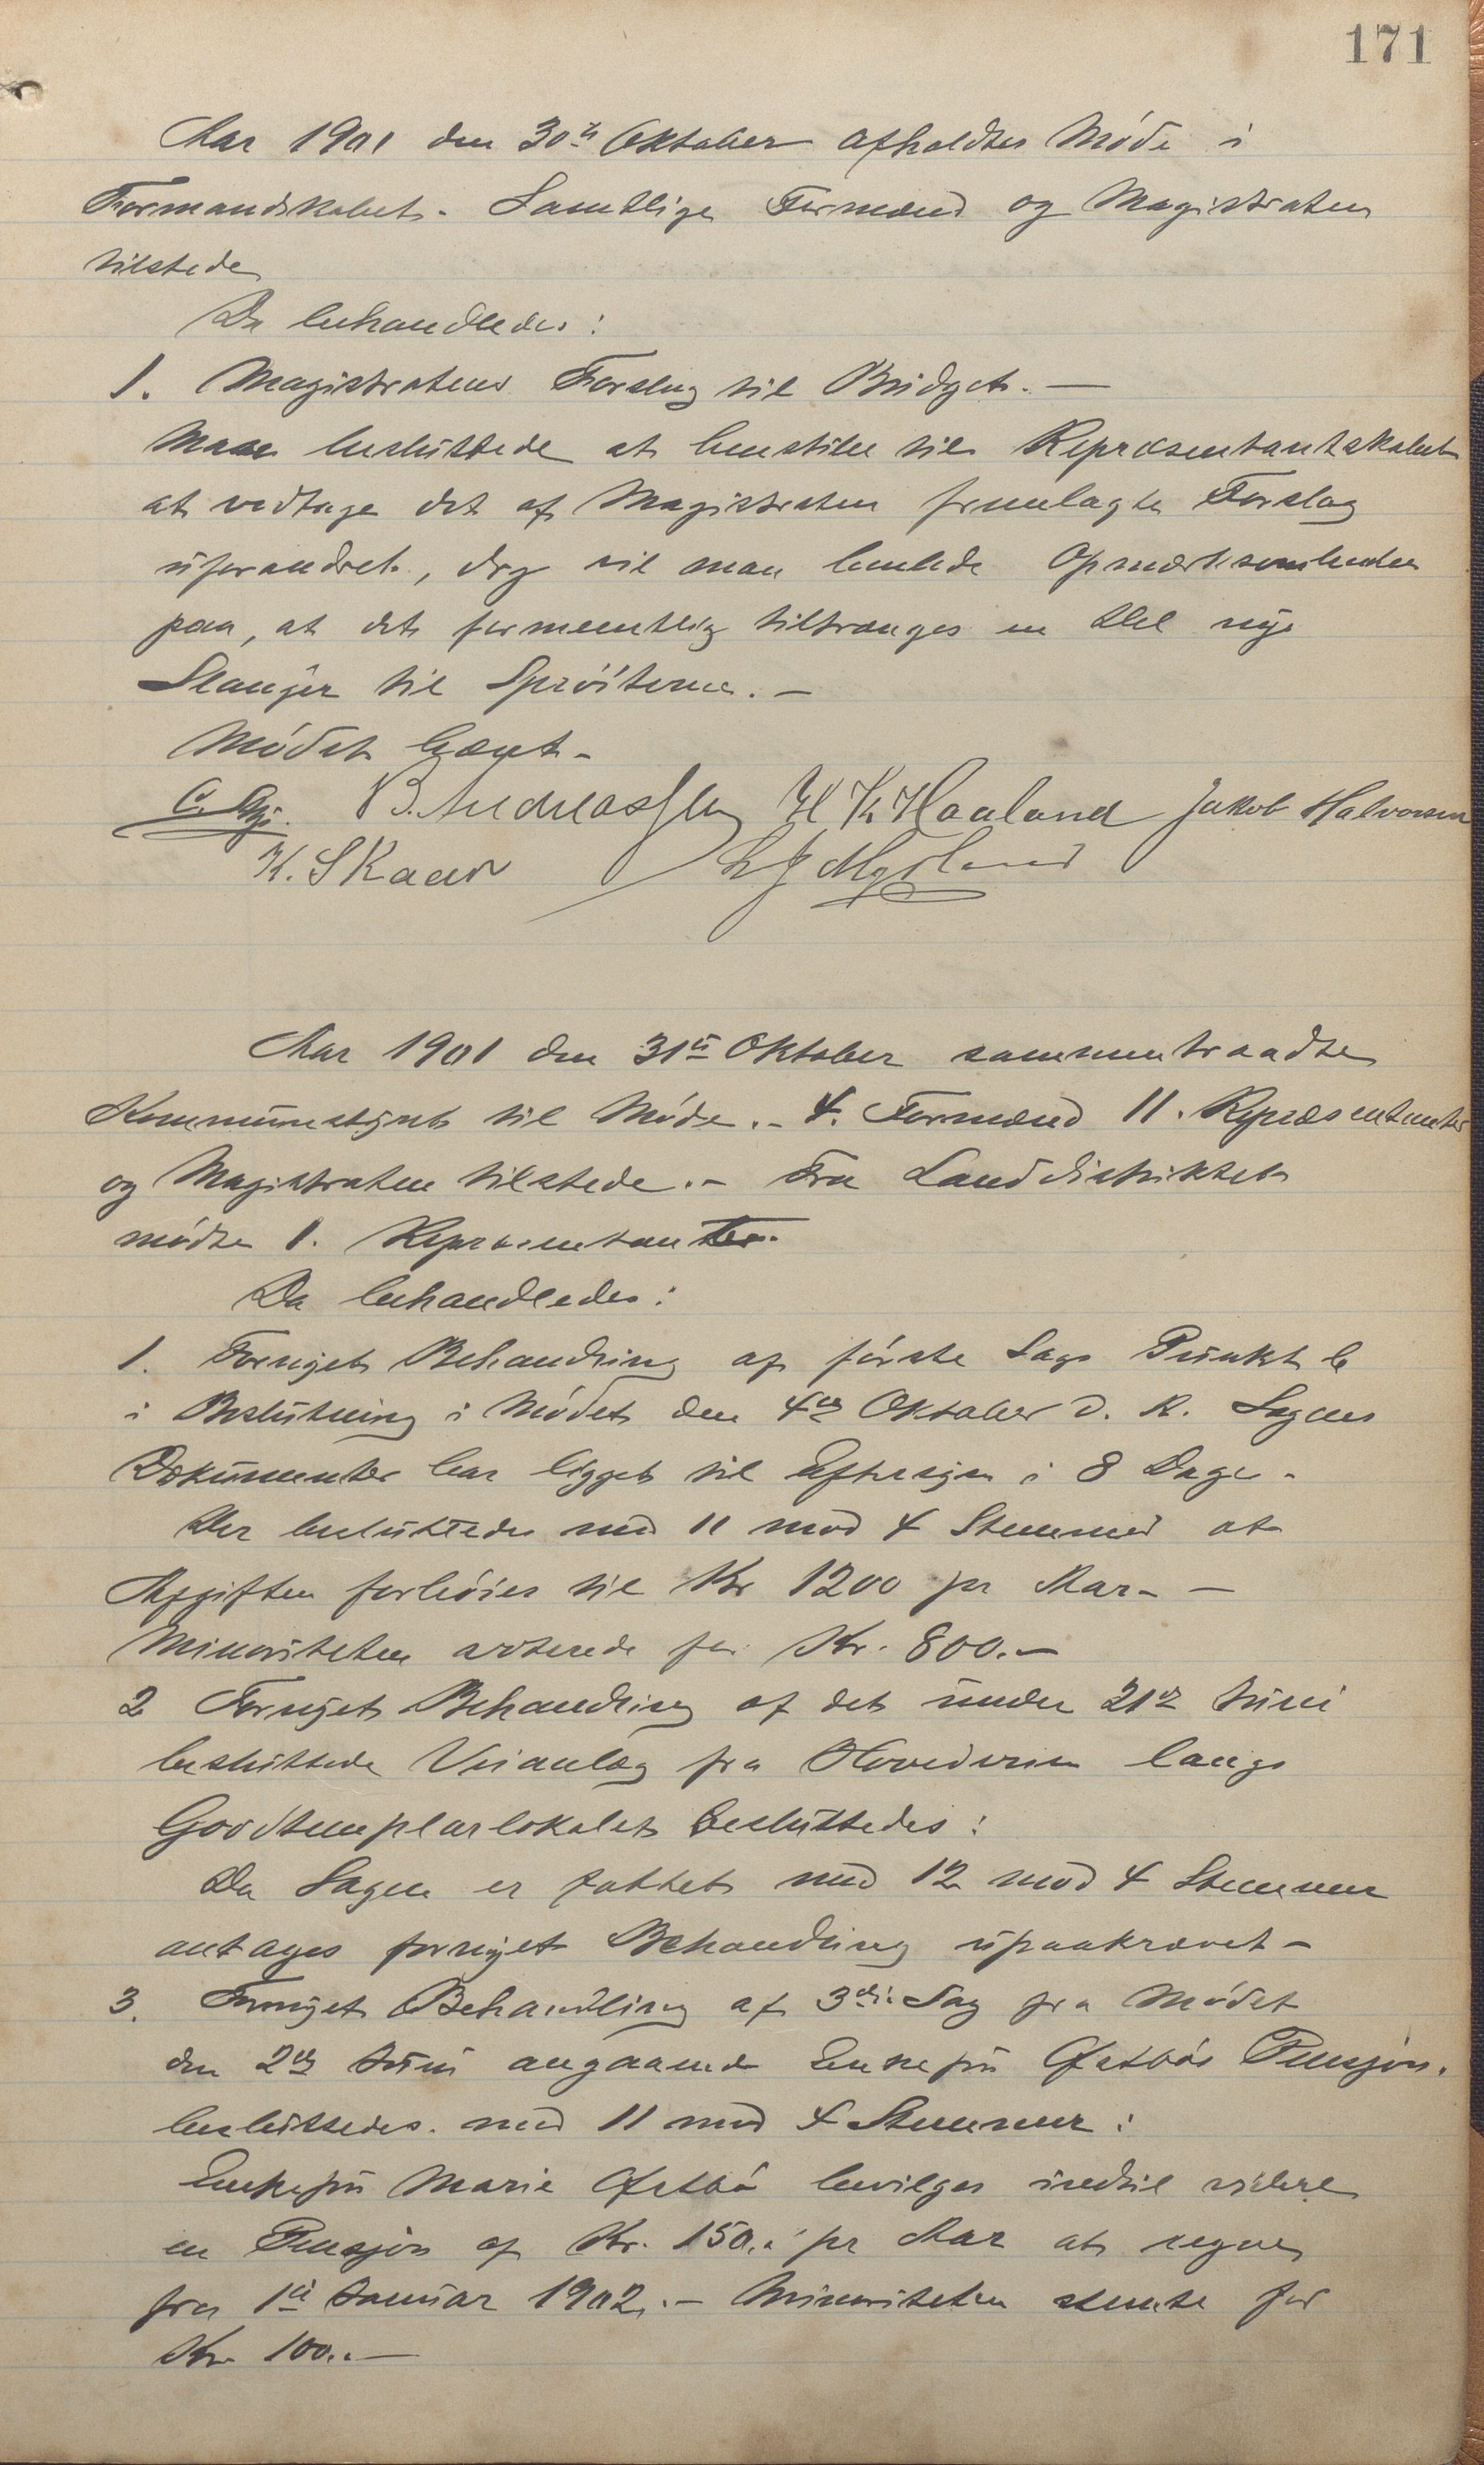 171
Aar 1901 den 30te Oktober afholdtes Møde i
Formandskabet. Samtlige Formænd og Magistraten
tilstede
Da behandledes:
1. Magistratens Forslag til Budget. —
Man besluttede at henstille til Repræsentantskabet
at vedtage det af Magistraten fremlagte Forslag
uforandret, dog vil man henlede Opmærksomheden
paa, at det formentlig tiltrænges en Del nye
Slanger til Sprøiterne. —
Mødet hævet -
B. Andreassen H K Haaland Jakob Halvorsen
K. Skaar
Aar 1901 den 31te Oktober sammentraadte
Kommunestyret til Møde. - 4. Formænd 11. Repræsentanter
og Magistraten tilstede. - Fra Landdistriktet
mødte 1. Repræsentanter.
Da behandledes:
1. Fornyet Behandling af første Sags Punkt b
i Beslutning i Mødet den 4de Oktober d. A. Sagens
Dokumenter har ligget til Eftersyn i 8 Dage.
Der besluttedes med 11 mod 4 Stemmer at
Afgiften forhøies til Kr 1200 pr Aar. —
Minoriteten voterede for Kr. 800. —
2 Fornyet Behandling af det under 21de Juni
besluttede Veianlæg fra Hovedveien langs
Goodtemplarlokalet besluttedes:
Da Sagen er fattet med 12 mod 4 Stemmer
antages fornyet Behandling upaakrævet -
3. Fornyet Behandling af 3die Sag fra Mødet
den 2de Juni angaaende Enkefru Østbøs Pensjon.
besluttedes. med 11 mod 4 Stemmer:
Enkefru Marie Østbø bevilges indtil videre
en Pensjon af Kr. 150.- pr Aar at regne
fra 1ste Januar 1902. - Minoriteten stemte for
Kr 100. —